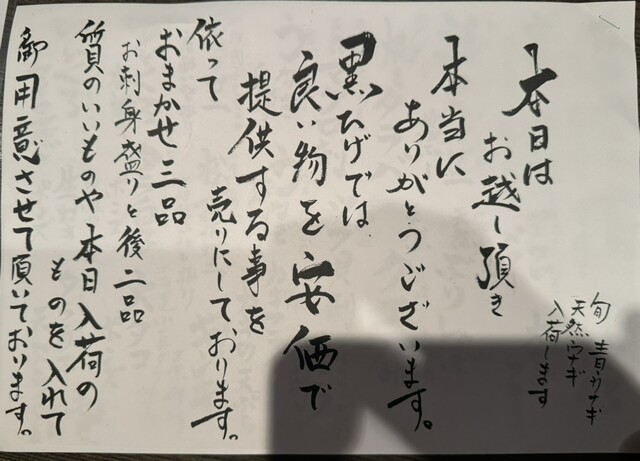 本日は
お越し頂き
本当に
ありがとうございます。
黒ひげでは、
良い物を安価で
提供する事を
売りにしております。
依って
おまかせ三品
お刺身盛りと後二品
質のいいものや本日入荷の
ものを入れて
御用意させて頂いております。
旬 青ウナギ
天然ウナギ
入荷します